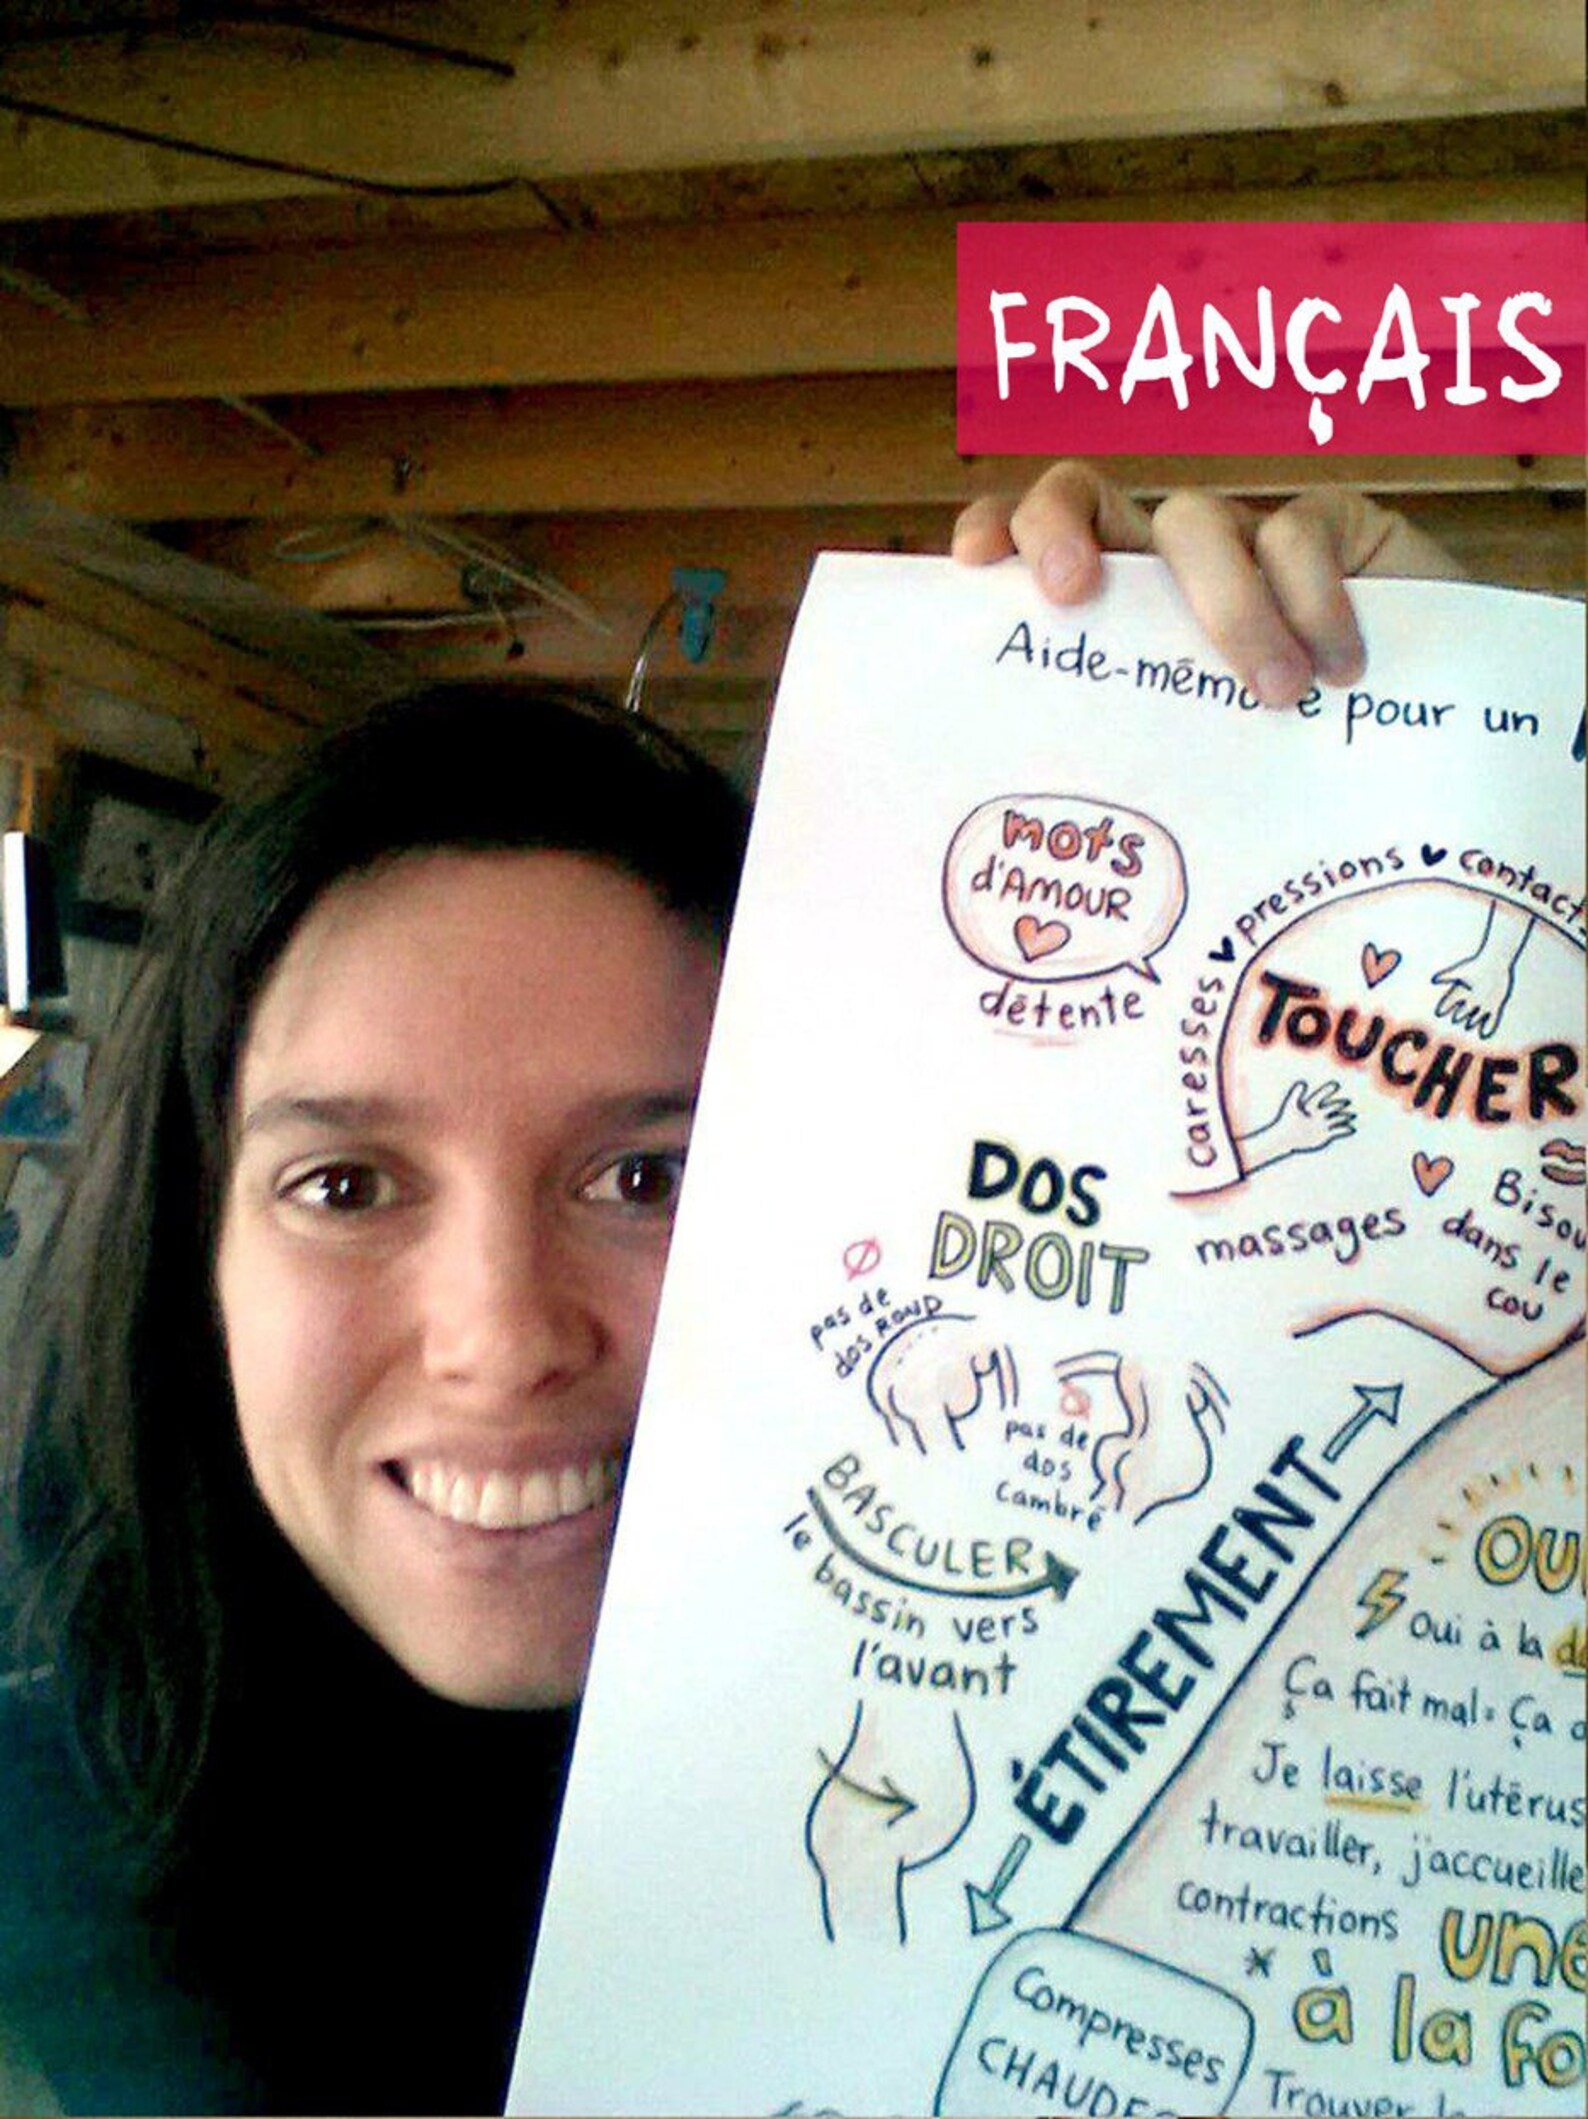 FRANÇAIS
Aide-mém e pour un
mots
d'AMOUR
détente
caresses pressions contacts
TOUCHER
massages
Bisou
dans le
cou
DOS
DROIT
pas de
dos ROND
pas de
dos
cambré
BASCULER
le bassin vers
l'avant
ÉTIREMENT
OUI
Oui à la
Ça fait mal = Ça
Je laisse l'utérus
travailler, j'accueille
contractions
une
à la fo
Compresses
CHAUDES
Trouver